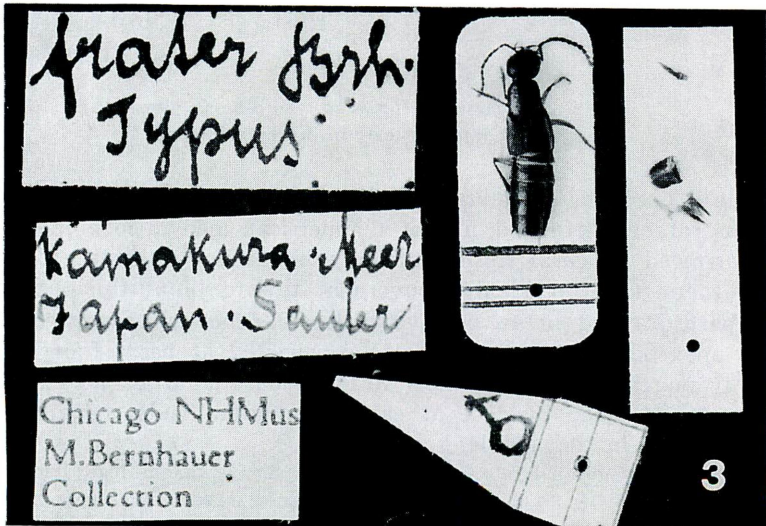 frater Brh.
Typus
Kamakura · Meer
Japan · Sauter
Chicago NHMus
M.Bernhauer
Collection
♂
3